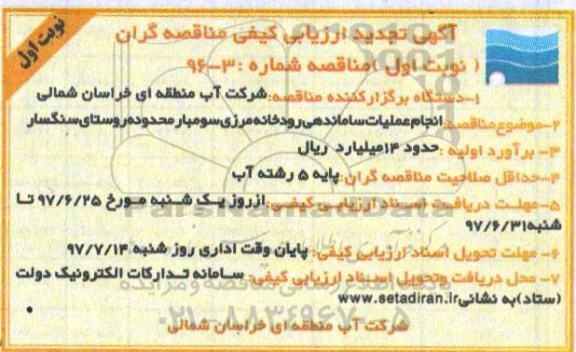 نوبت اول
آگهی تجدید ارزیابی کیفی مناقصه گران
( نوبت اول )مناقصه شماره :۳-۹۶
۱-دستگاه برگزارکننده مناقصه:شرکت آب منطقه ای خراسان شمالی
۲-موضوع مناقصه:انجام عملیات ساماندهی رودخانه مرزی سومبار محدوده روستای سنگسار
۳- برآورد اولیه :حدود ۱۴میلیارد ریال
۴-حداقل صلاحیت مناقصه گران:پایه ۵ رشته آب
۵-مهلت دریافت اسناد ارزیابی کیفی:ازروز یک شنبه مورخ ۹۷/۶/۲۵ تا
شنبه۹۷/۶/۳۱
۶- مهلت تحویل اسناد ارزیابی کیفی: پایان وقت اداری روز شنبه ۹۷/۷/۱۴
۷- محل دریافت وتحویل اسناد ارزیابی کیفی: سامانه تدارکات الکترونیک دولت
(ستاد)به نشانیwww.setadiran.ir
شرکت آب منطقه ای خراسان شمالی
ParsNamadData
۰۲۱-۸۸۳۴۹۶۷۰-۵